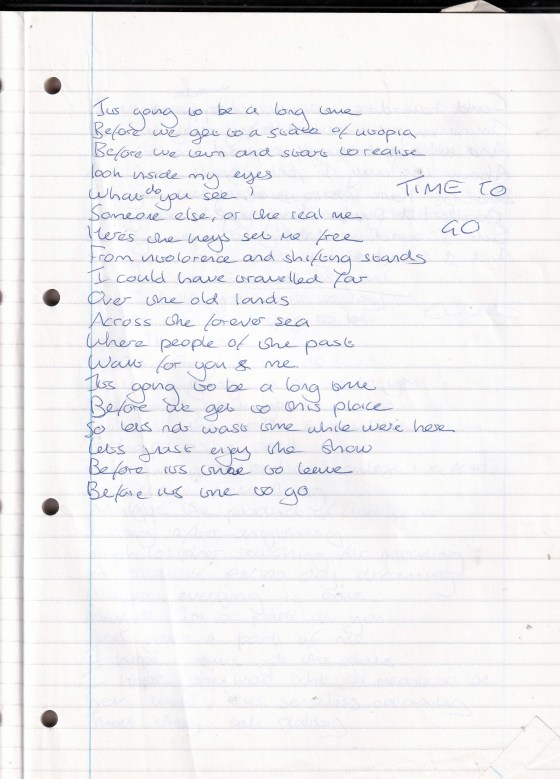 Its going to be a long time
Before we get to a state of utopia
Before we turn and start to realise
look inside my eyes
What do you see?
TIME TO
Someone else, or the real me
GO
Heres the keys set me free
From intolorence and shifting stands
I could have travelled far
Over the old lands
Across the forever sea
Where people of the past
Wait for you & me
Its going to be a long time
Before we get to this place
So lets not wast time while we're here
Lets just enjoy the show
Before its time to leave
Before its time to go